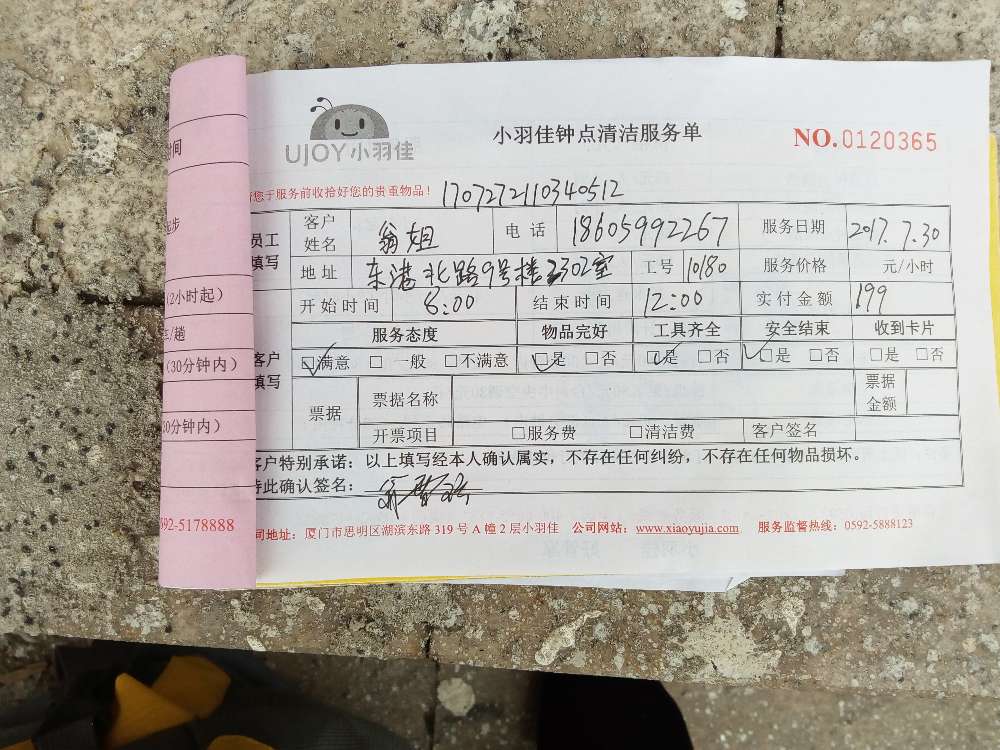 UjOY小羽佳
小羽佳钟点清洁服务单
NO.0120365
您于服务前收拾好您的贵重物品！ 1707272110340512
员工填写 客户姓名 翁姐 电话 18605992267 服务日期 2017.7.30
地址 东港北路9号楼2302室 工号 10180 服务价格 元/小时
开始时间 8:00 结束时间 12:00 实付金额 199
客户填写 服务态度 物品完好 工具齐全 安全结束 收到卡片
☑满意 □一般 □不满意 ☑是 □否 ☑是 □否 ☑是 □否 □是 □否
票据 票据名称 票据金额
开票项目 □服务费 □清洁费 客户签名
客户特别承诺：以上填写经本人确认属实，不存在任何纠纷，不存在任何物品损坏。
特此确认签名：
司地址：厦门市思明区湖滨东路 319 号 A 幢 2 层小羽佳 公司网站：www.xiaoyujia.com 服务监督热线：0592-5888123
时间
起步
（2小时起）
元/趟
（30分钟内）
30分钟内）
592-5178888